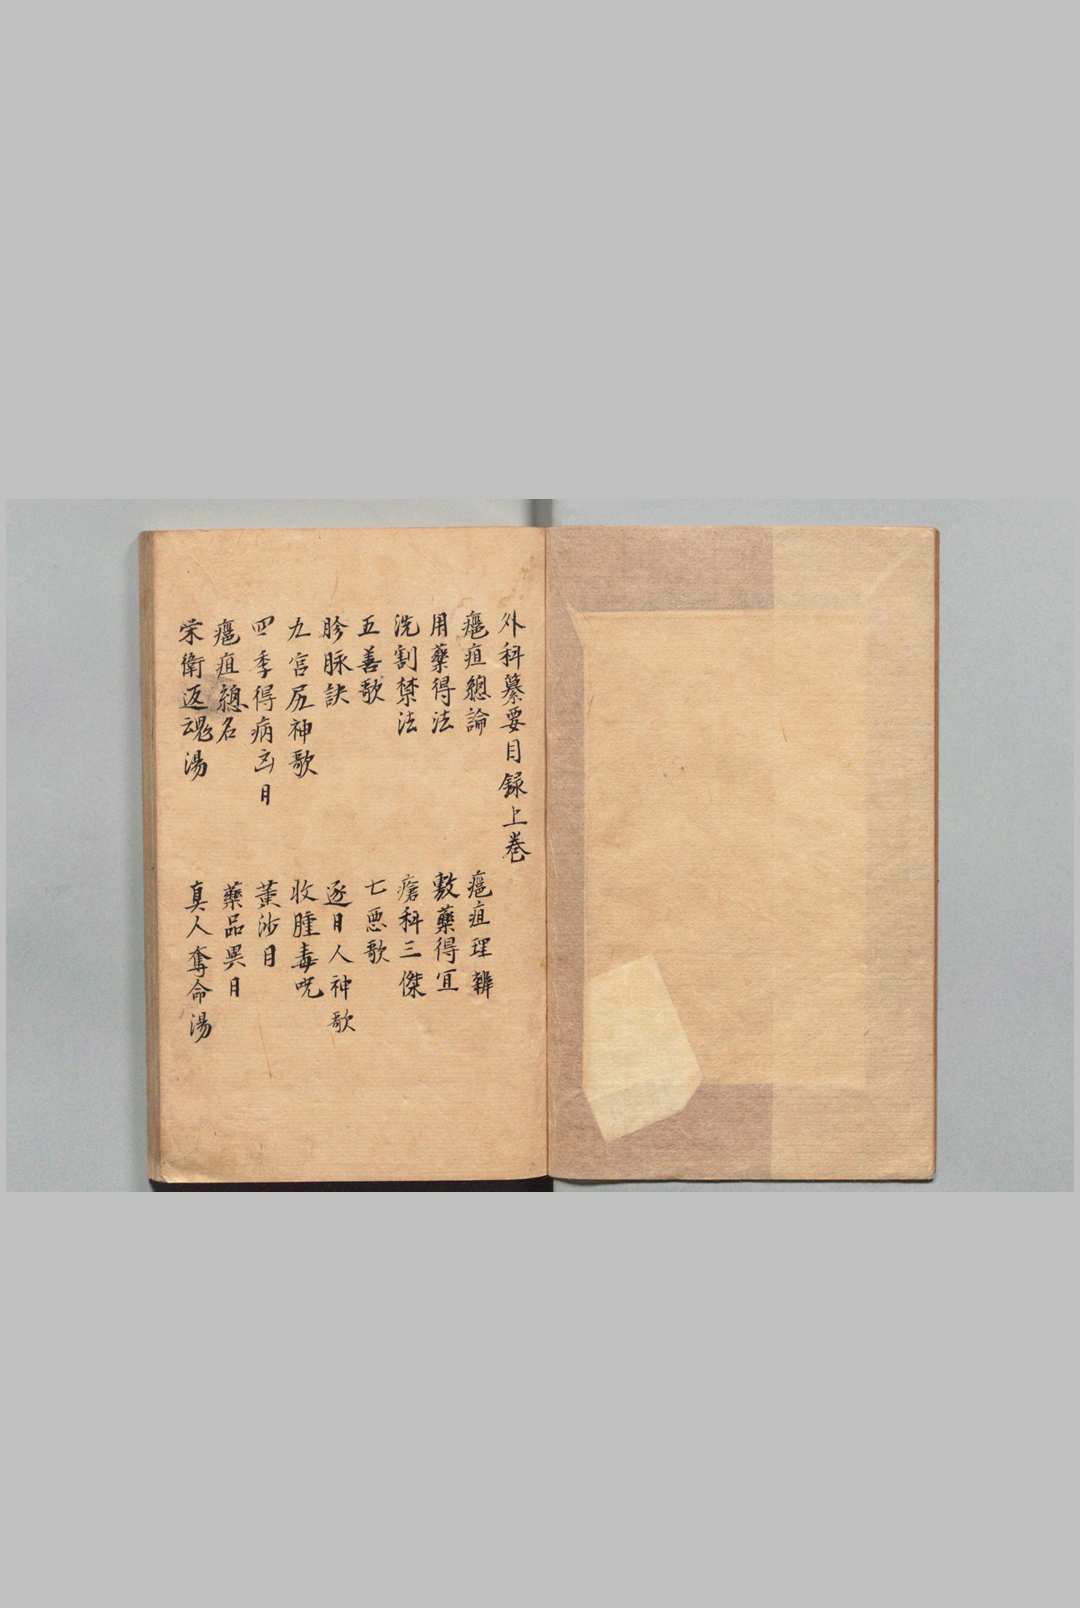 外科纂要目録上卷
癰疽總論　癰疽理辨
用藥得法　敷藥得宜
洗割禁法　瘡科三傑
五善歌　七惡歌
胗脉訣　逐日人神歌
九宮尻神歌　收腫毒呪
四季得病凶日　黃沙日
癰疽總名　藥品異日
荣衛返魂湯　真人奪命湯